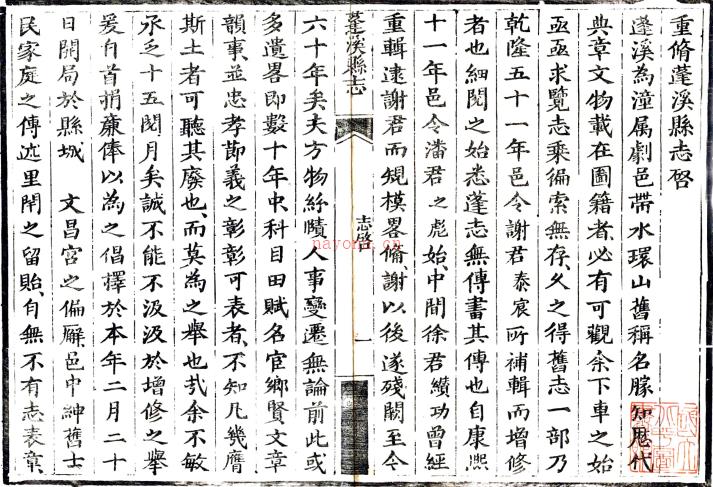 重脩蓬溪縣志啓
蓬溪為潼属劇邑帶水環山舊稱名勝知歷代
典章文物載在圖籍者必有可觀余下車之始
亟亟求覽志乘徧索無存久之得舊志一部乃
乾隆五十一年邑令謝君泰宸所補輯而增修
者也細閱之始悉蓬志無傳書其傳也自康熙
十一年邑令潘君之彪始中間徐君纘功曾經
重輯逮謝君而規模畧俻謝以後遂殘闕至今
蓬溪縣志
志啓
一
六十年矣夫方物絲賾人事變遷無論前此或
多遺畧即數十年中科目田賦名宦鄉賢文章
韻事並忠孝節義之彰彰可表者不知凡幾膺
斯土者可聽其廢也而莫為之舉也㢤余不敏
承乏十五閱月矣誠不能不汲汲於增修之舉
爰自首捐廉俸以為之倡擇於本年二月二十
日開局於縣城 文昌宮之偏廨邑中紳舊士
民家庭之傳述里閈之留貽自無不有志表章
nayona.cn